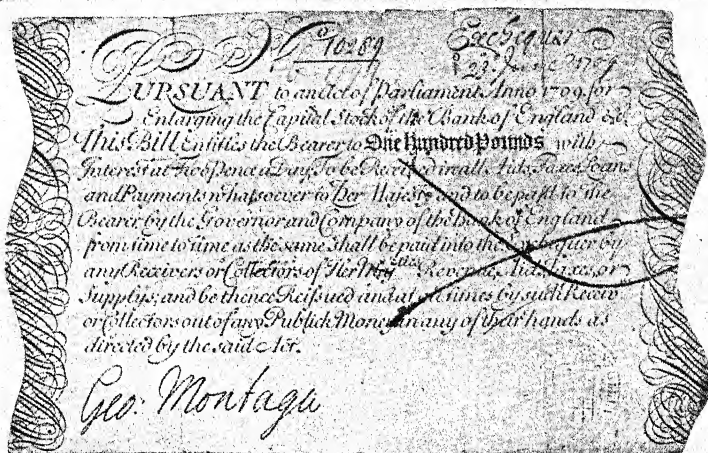 No 10289 Exchequer
23 June 1709
PURSUANT to an Act of Parliament Anno 1709. for
Enlarging the Capital Stock of the Bank of England &c.
This Bill Entitles the Bearer to One Hundred Pounds with
Interest at Two Pence a Day, To be Received in all Aids, Taxes, Loans
and Payments whatsoever to Her Majesty and to be paid to the
Bearer by the Governor and Company of the Bank of England
from time to time as the same shall be paid into the Exchequer by
any Receivers or Collectors of Her Maj.ties Revenue, Aids, Taxes, or
Supplys, and be thence Reissued and at all times by such Receiv.rs
or Collectors out of any Publick Money in any of their hands as
directed by the said Act.
Geo: Montagu